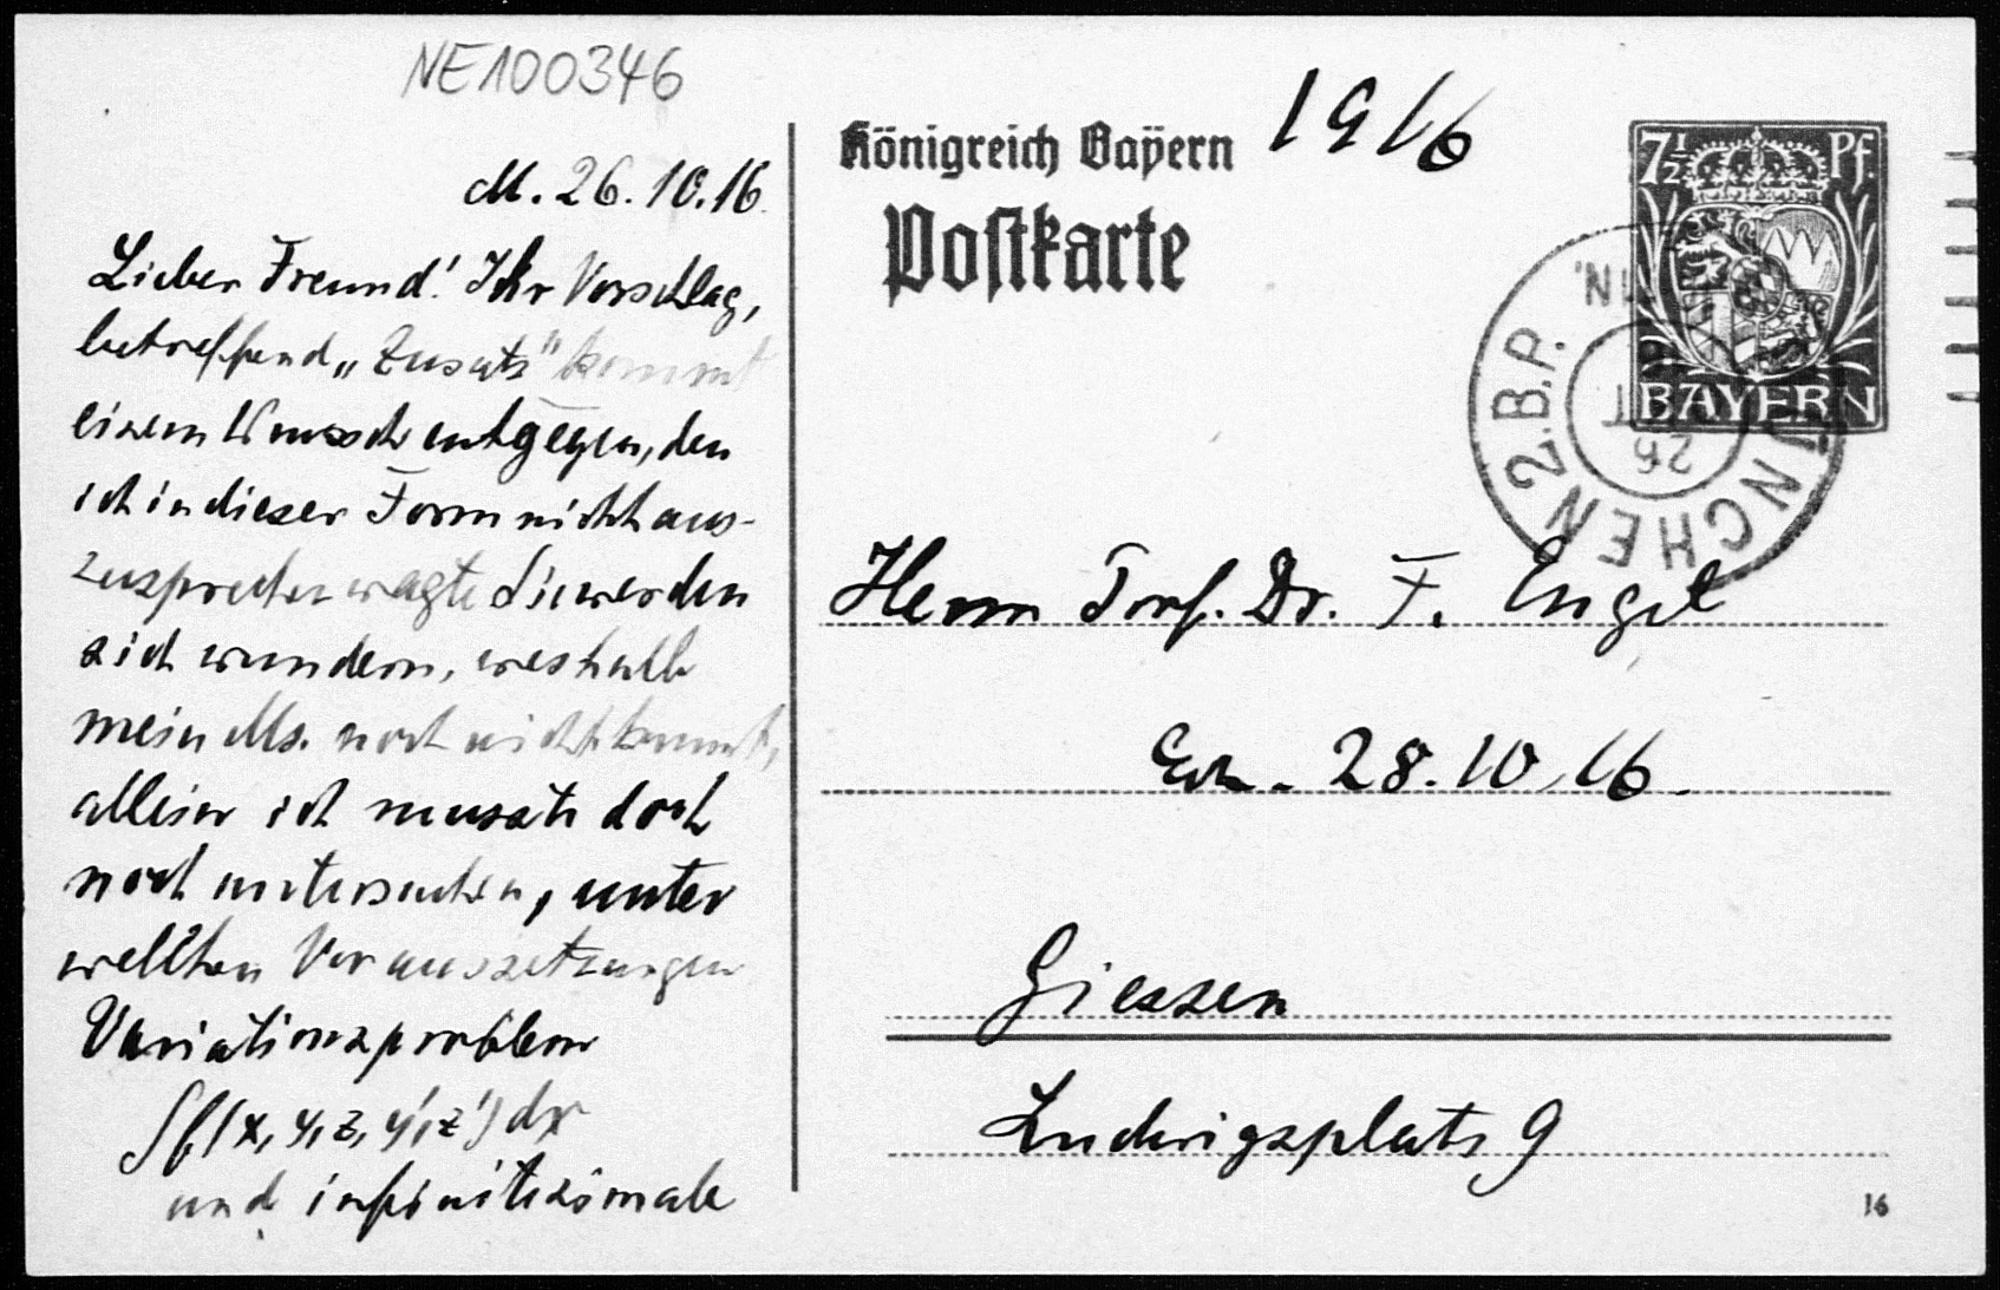 NE100346
M. 26.10.16.
Lieber Freund! Ihr Vorschlag,
betreffend „Zusatz" kommt
einem Wunsch entgegen, den
ich in dieser Form nicht aus-
zusprechen wagte Sie werden
sich wundern, weshalb
mein Ms. noch nicht kommt,
allein ich musste doch
noch untersuchen, unter
welchen Voraussetzungen
Variationsproblem
∫f(x, y, z, y', z') dx
und infinitesimale
Königreich Bayern 1916
Postkarte
7½ Pf.
BAYERN
MÜNCHEN 2.B.P.
26
Herrn Prof. Dr. F. Engel
Erh. 28.10.16.
Giessen
Ludwigsplatz 9
16